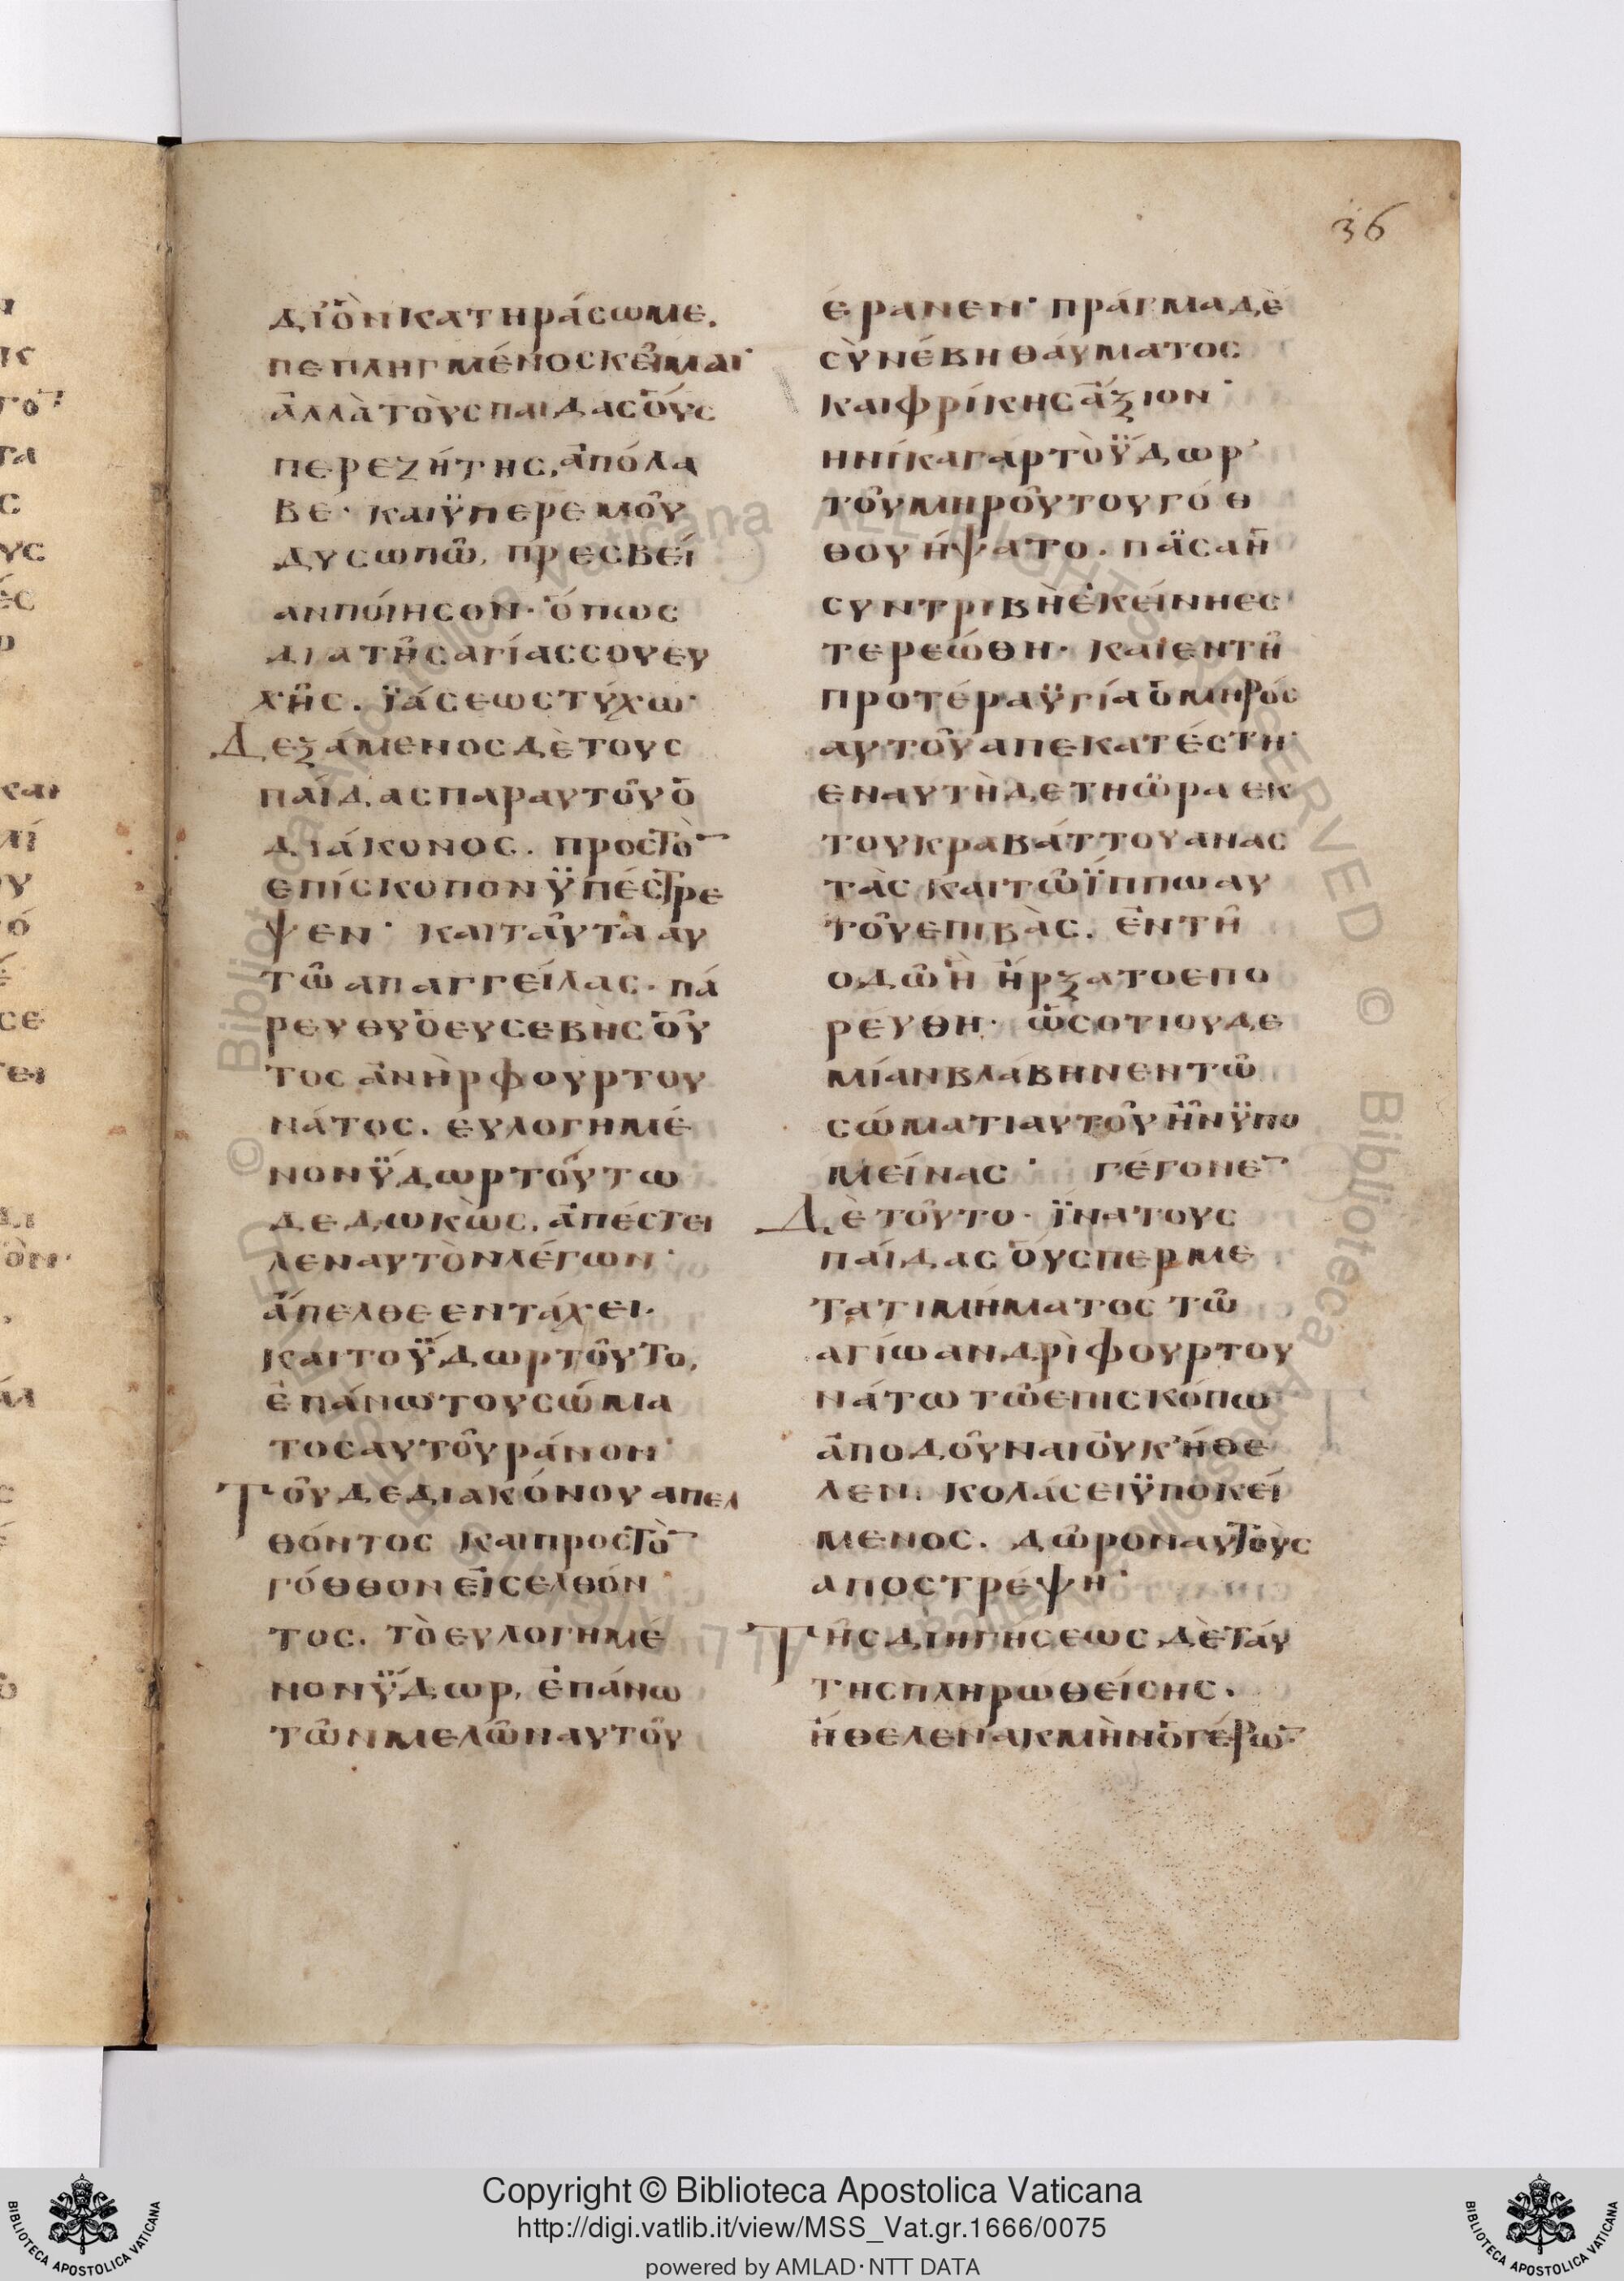 36
διὸν κατηράσω με.
πεπληγμένος κεῖμαι·
ἀλλὰ τοὺς παιδας οὕς
περ εζήτης, ἀπόλα
βε· και ϋπερ εμοῦ
δυσωπῶ, πρεσβεί
αν ποίησον· ὅπως
δια τῆς αγίας σου ευ
χῆς. ϊάσεως τύχω·
Δεξάμενος δὲ τους
παίδας παρ αυτοῦ ὁ
διάκονος. προς τὸν
επίσκοπον ϋπέστρε
ψεν· και ταῦτα αυ
τῶ απαγγείλας· πά
ρευθυ ὁ ευσεβὴς οὗ
τος ἀνὴρ φουρτου
νάτος. ευλογημέ
νον ϋδωρ τούτω
δεδωκὼς, ἀπέστει
λεν αυτὸν λέγων·
ἄπελθε εν τάχει.
και το ϋδωρ τοῦτο,
ἐπάνω του σώμα
τος αυτοῦ ράνον·
Τοῦ δε διακόνου απελ
θόντος και προς τὸν
γόθθον εἰσελθόν
τος. τὸ ευλογημέ
νον ϋδωρ, ἐπάνω
τῶν μελῶν αυτοῦ
έρανεν· πράγμα δὲ
σὺνέβη θάυματος
και φρίκης ἄξιον·
ηνίκα γάρ τὸ ϋδωρ
τοῦ μηροῦ του γόθ
θου ήψατο. πᾶσα ἡ
συντριβὴ ἐκείνη εσ
τερεώθη· και εν τῆ
προτέρα ϋγία ὁ μηρός
αυτοῦ απεκατέστη·
εν αυτὴ δε τη ὥρα εκ
του κραβάττου ανασ
τὰς και τῶ ΐππω αυ
τοῦ επιβὰς. ἐν τῆ
οδῶ ἧ ἤρξατο επο
ρέυθη· ὡς οτι ουδε
μίαν βλάβην εν τῶ
σώματι αυτοῦ ἦν ϋπο
μείνας· γέγονεν
Δὲ τοῦτο· ϊνα τους
παίδας οὕσπερ με
τα τιμήματος τῶ
αγίω ανδρὶ φουρτου
νάτω τῶ επισκόπω
ἀποδοῦναι οὐκ ήθε
λεν. κολάσει ϋποκεί
μενος. δῶρον αυτοὺς
αποστρέψη·
Τῆς διηγησεως δὲ τάυ
της πληρωθείσης.
ήθελεν ακμὴν ὁ γέρων·
Copyright © Biblioteca Apostolica Vaticana
http://digi.vatlib.it/view/MSS_Vat.gr.1666/0075
powered by AMLAD·NTT DATA
BIBLIOTECA APOSTOLICA VATICANA
BIBLIOTECA APOSTOLICA VATICANA